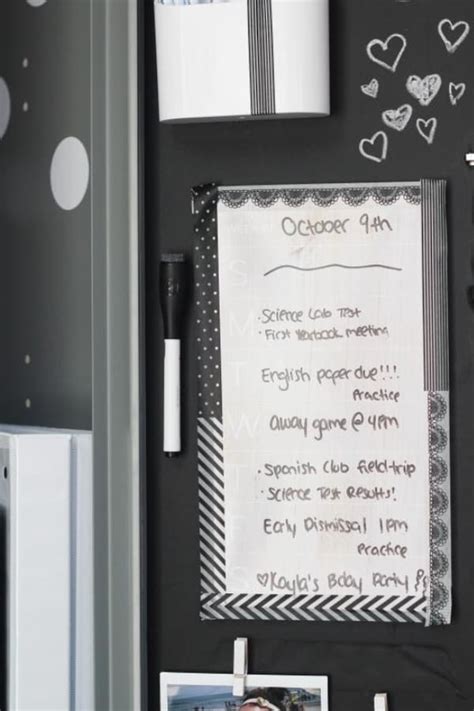 October 9th
S
M
· Science Lab Test
· First Yearbook meeting
T
English paper due!!!
Practice
W
Away game @ 4pm
· Spanish Club field-trip
· Science Test Results!
Early Dismissal 1PM
Practice
S
♡ Kayla's Bday Party